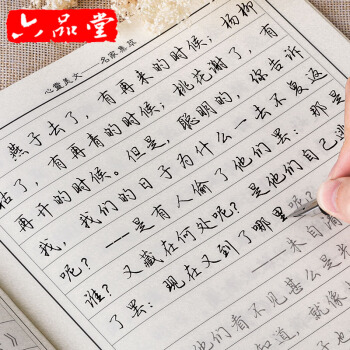 六品堂
心靈美文
燕子去了,有再来的时候;杨柳
枯了,有再青的时候;桃花谢了,有
再开的时候。但是,聪明的,你告诉
我,我们的日子为什么一去不复返
呢?——是有人偷了他们罢:那是
谁?又藏在何处呢?是他们自己逃
了罢:现在又到了哪里呢?
——朱自清
他们看不见甚么是光
知道,就像
子也